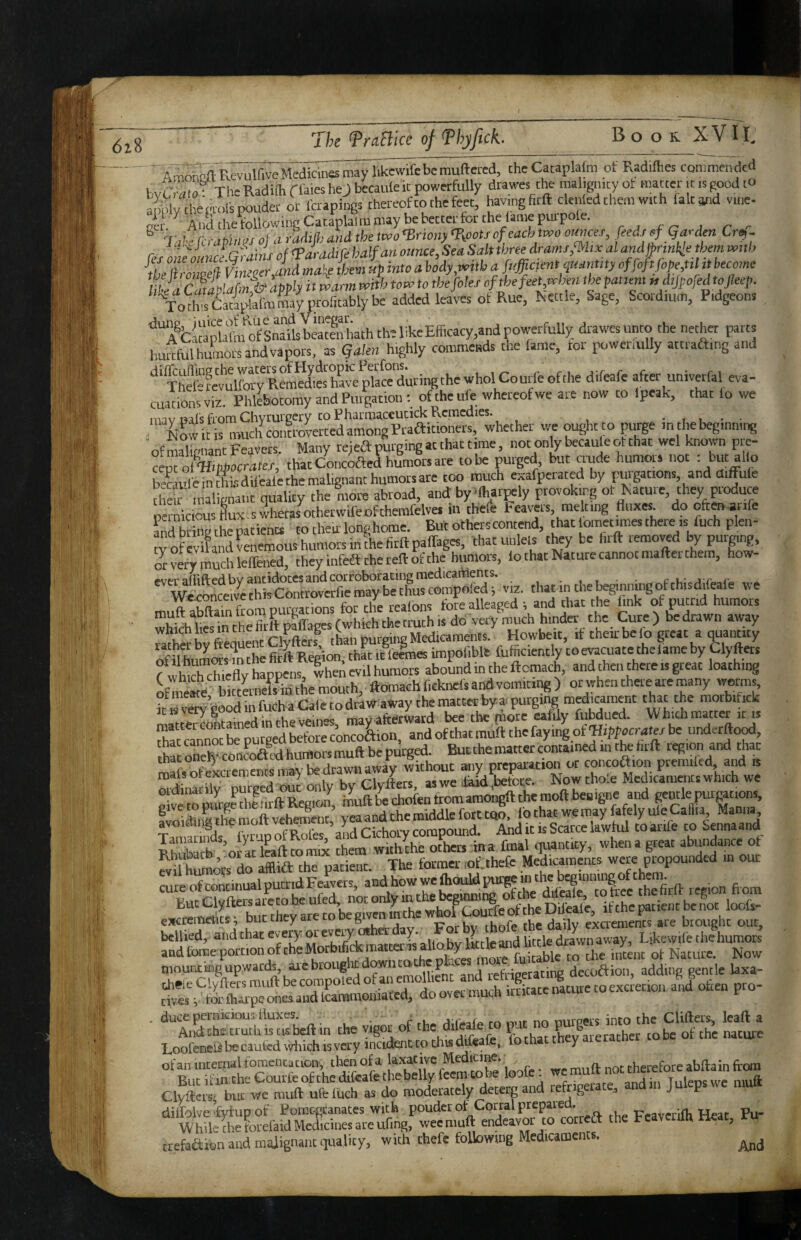 628 The Practice of Physick. Book XVII.
Amongst Revulsive Medicines may likewise be mustered, the Cataplasm of Radishes commended
by Crato: The Radish (saies he) because it powerfully drawes the malignity of matter it is good to
apply the gross pouder or scrapings thereof to the feet, having first clensed them with salt and vine-
ger. And the following Cataplasm may be better for the same purpose.
Take scrapings of a radish and the two Briony Roots of each two ounces, seeds of Garden Cres-
ses one ounce, Grains of Paradise half an ounce, Sea Salt three drams, Mix al and sprinkle them with
the strongest Vineger, and make them up into a body, with a sufficient quantity of soft sope, til it become
like a Cataplasm, & apply it warm with tow to the soles of the feet, when the patient is disposed to sleep.
To this Cataplasm may profitably be added leaves of Rue, Nettle, Sage, Scordium, Pidgeons
dung, juice of Rue and Vinegar.
A Cataplasm of Snails beaten hath the like Efficacy, and powerfully drawes unto the nether parts
hurtful humors and vapors, as Galen highly commends the same, for powerfully attracting and
discussing the waters of Hydropic Persons.
These revulsory Remedies have place during the whol Course of the disease after universal eva-
cuations viz. Phlebotomy and Purgation: of the use whereof we are now to speak, that so we
may pass from Chyrurgery to Pharmaceutick Remedies.
Now it is much controverted among Practitioners, whether we ought to purge in the beginning
of malignant Feavers. Many reject purging at that time, not only because of that wel known pre-
cept of Hippocrates, that Concocted humors are to be purged, but crude humors not: but also
because in this disease the malignant humors are too much exasperated by purgations, and diffuse
their malignant quality the more abroad, and by sharpely provoking of Nature, they produce
pernicious fluxes wheras otherwise of themselves in these Feavers, melting fluxes do often arise
and bring the patients to their long home. But others contend, that sometimes there is such plen-
ty of evil and venemous humors in the first passages, that unless they be first removed by purging,
or very much lessened, they infect the rest of the humors, so that Nature cannot master them, how-
ever assisted by antidotes and corroborating medicaments.
We conceive this Controversie may be thus composed; viz. that in the beginning of this disease we
must abstain from purgations for the reasons fore alleaged; and that the sink of putrid humors
which lies in the first passages (which the truth is do very much hinder the Cure) be drawn away
rather by frequent Clysters, than purging Medicaments. Howbeit, if their be so great a quantity
of il humors in the first Region, that it seemes imposible sufficiently to evacuate the same by Clysters
(which chiefly happens, when evil humors abound in the stomach, and then there is great loathing
of meate, bitterness in the mouth, stomach sickness and vomiting) or when there are many worms,
it is very good in such a Case to draw away the matter by a purging medicament that the morbifick
matter contained in the veines, may afterward bee the more easily subdued. Which matter it is
that cannot be purged before concoction, and of that must the saying of Hippocrates be understood,
that onely concocted humors must be purged. But the matter contained in the first region and that
mass of excrements may be drawn away without any preparation or concoction premised, and is
ordinarily purged out only by Clysters, as we said before. Now those Medicaments which we
give to purge the first Region, must be chosen from amongst the most benigne and gentle purgations,
avoiding the most vehement, yea and the middle sort too, so that we may safely use Cassia, Manna,
Tamarinds, syrup of Roses, and Cichory compound. And it is Scarce lawful to arise to Senna and
Rhubarb, or at least to mix them with the others in a smal quantity, when a great abundance of
evil humors do afflict the patient. The former of these Medicaments were propounded in our
cure of continual putrid Feavers, and how we should purge in the beginning of them.
But Clysters are to be used, not only in the beginning of the disease, to free the first region from
excrements; but they are to be given in the whol Course of the Disease, if the patient be not loose-
bellied, and that every or every other day. For by those the daily excrements are brought out,
and some portion of the Morbifick matter is also by little and little drawn away, Likewise the humors
mounting upwards, are brought down to the places more suitable to the intent of Nature. Now
these Clysters must be composed of an emollient and refrigerating decoction, adding gentle laxa-
tives; for sharpe ones and scammoniated, do over much irritate nature to excretion and often pro-
duce pernicious fluxes.
And the truth is tis best in the vigor of the disease to put no purgers into the Clisters, least a
Looseness be caused which is very incident to this disease, so that they are rather to be of the nature
of an internal fomentation, then of a laxative Medicine.
But if in the Course of the disease the belly seem to be loose: we must not therefore abstain from
Clysters, but we must use such as do moderately deterg and refrigerate, and in Juleps we must
dissolve syrup of Pomegranates with pouder of Corral prepared.
While the foresaid Medicines are using, wee must endeavor to correct the Feaverish Heat, Pu-
trefaction and malignant quality, with these following Medicaments.
And